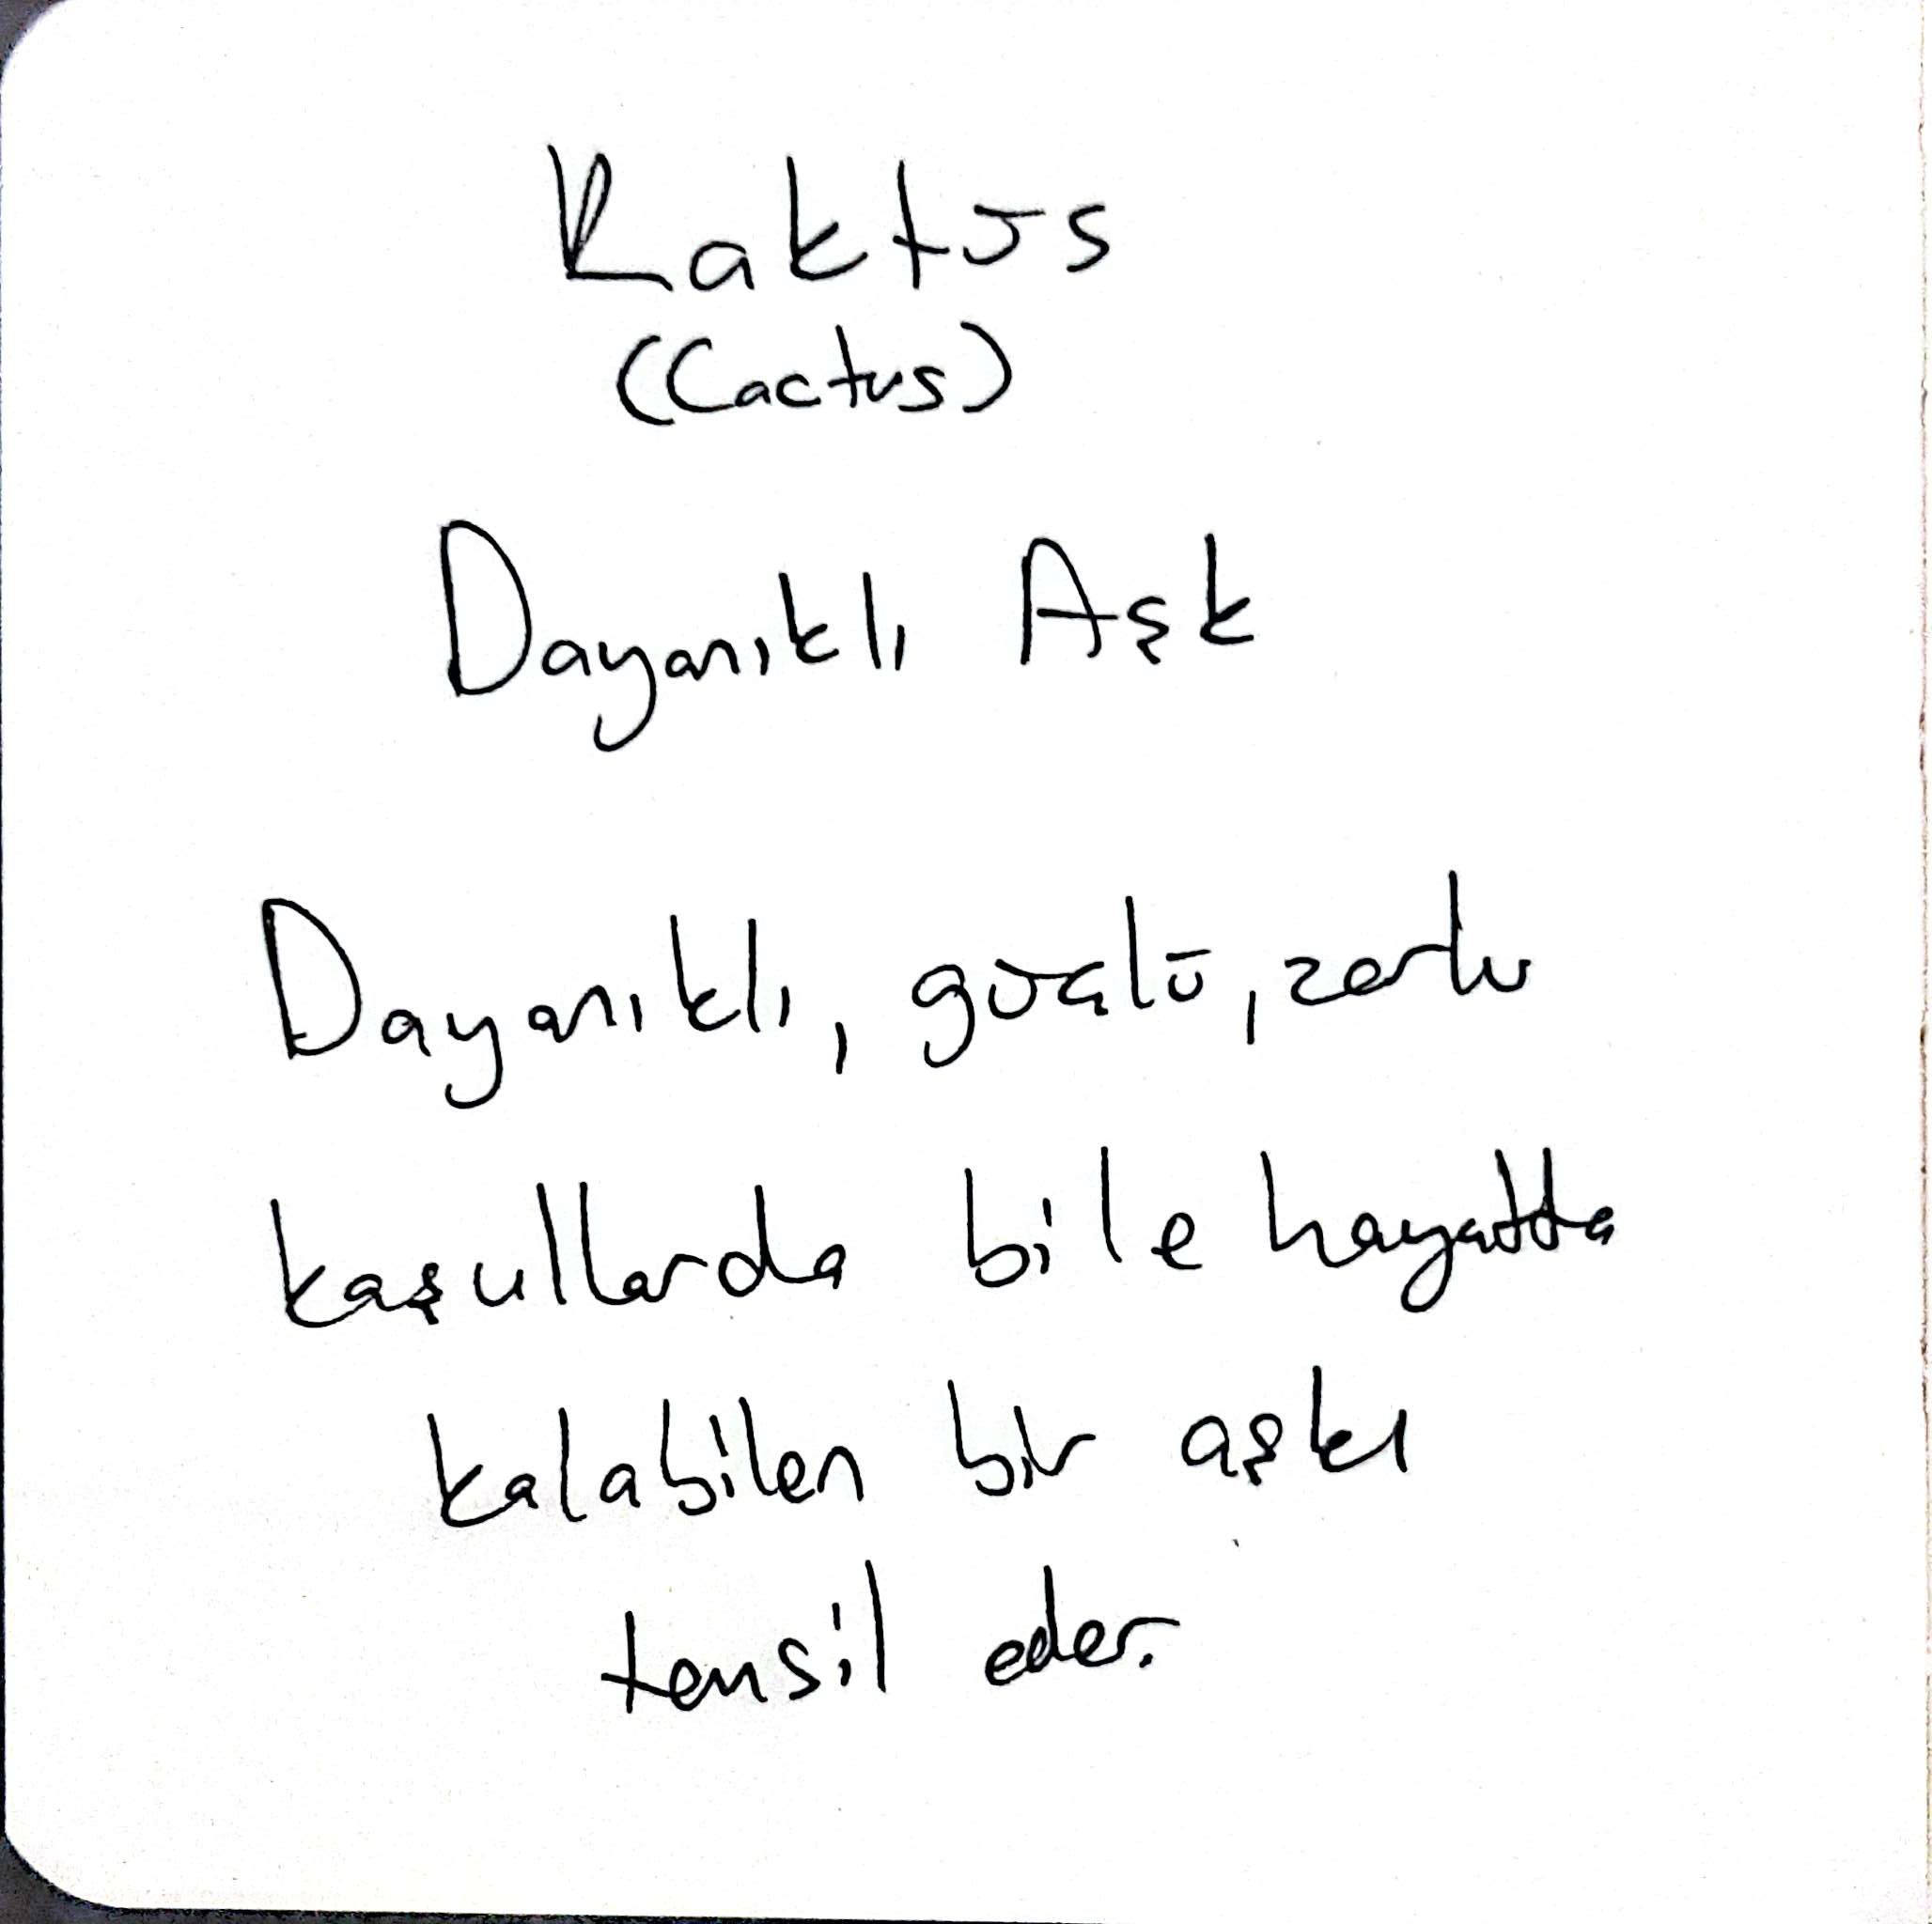 Kaktüs
(Cactus)
Dayanıklı Aşk
Dayanıklı, güçlü, zorlu
kaşullarda bile hayatta
kalabilen bir aşkı
temsil eder.